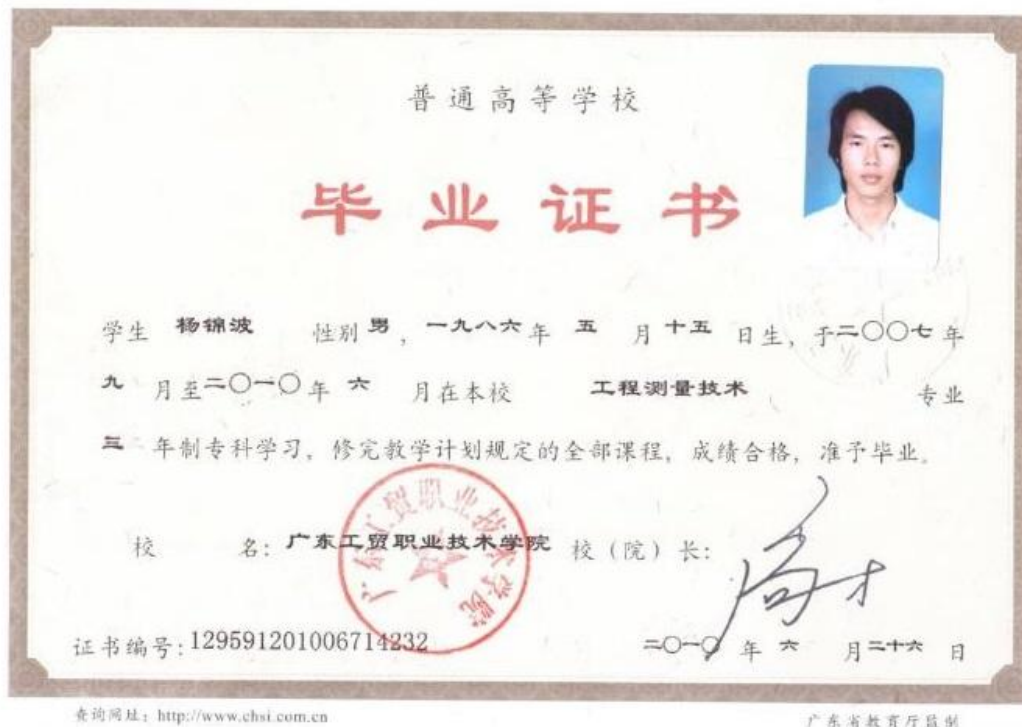 普通高等学校
毕业证书
学生 杨锦波 性别 男 ，一九八六 年 五 月 十五 日生，于二〇〇七 年
九 月至二〇一〇年 六 月在本校 工程测量技术 专业
三 年制专科学习，修完教学计划规定的全部课程，成绩合格，准予毕业。
广东工贸职业技术学院
校 名：广东工贸职业技术学院 校（院）长：
证书编号：129591201006714232 二〇一〇 年 六 月二十六 日
查询网址：http://www.chsi.com.cn 广东省教育厅监制